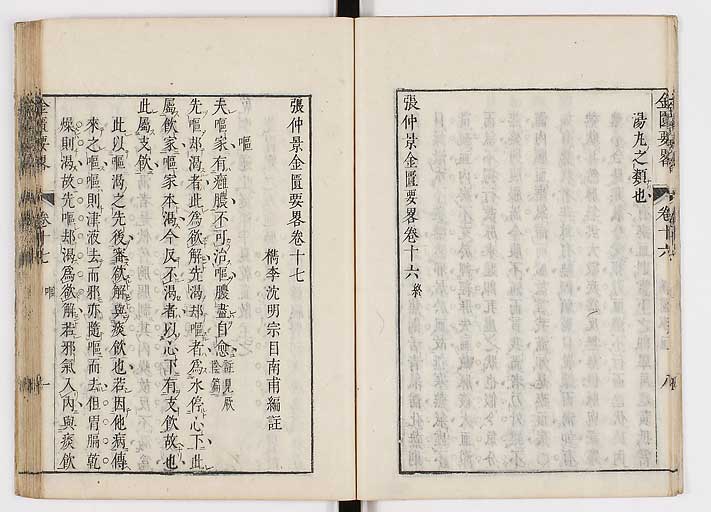 金匱要畧 卷十六 八
湯丸之類也
張仲景金匱要畧卷十六終
張仲景金匱要畧卷十七
檇李沈明宗目南甫編註
嘔
夫嘔家有癰膿不可治嘔膿盡自愈註見厥陰篇
先嘔却渴者此爲欲解先渴却嘔者爲水停心下此
屬飲家嘔家本渴今反不渴者以心下有支飲故也
此屬支飲
此以嘔渴之先後審欲解與痰飲也若因他病傳
來之嘔嘔則津液去而邪亦隨嘔而去但胃膈乾
燥則渴故先嘔却渴爲欲解若邪氣入內與痰飲
金匱要畧 卷十七 嘔 一